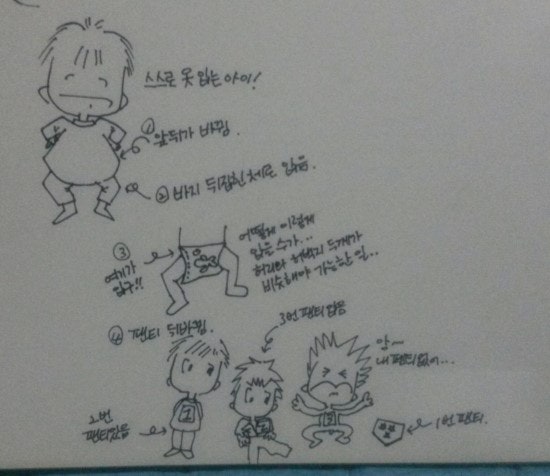 스스로 옷 입는 아이!
① 앞뒤가 바뀜.
② 바지 뒤집힌 채로 입음.
③ 여기가 입구!!
어떻게 이렇게
입을 수가...
허리와 허벅지 두께가
비슷해야 가능한 일...
④ 팬티 뒤바뀜.
3번 팬티 입음
앙~
내 팬티 없어...
2번
팬티입음
1
2
3
1번 팬티.